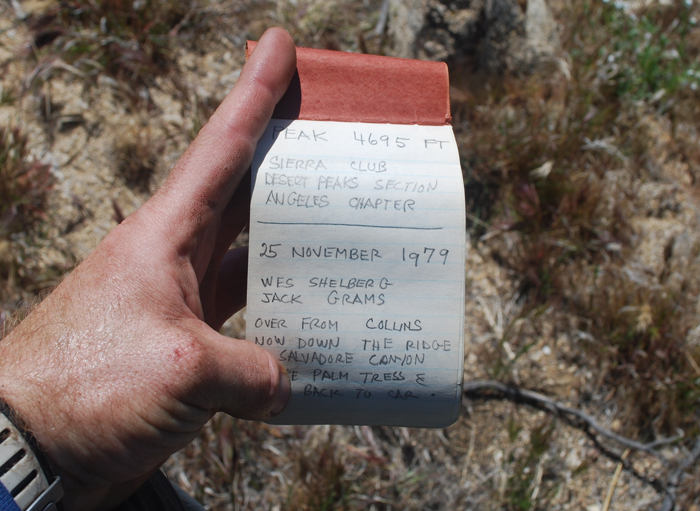 PEAK 4695 FT
SIERRA CLUB
DESERT PEAKS SECTION
ANGELES CHAPTER
25 NOVEMBER 1979
WES SHELBERG
JACK GRAMS
OVER FROM COLLINS
NOW DOWN THE RIDGE
SALVADORE CANYON
PALM TRESS &
BACK TO CAR.